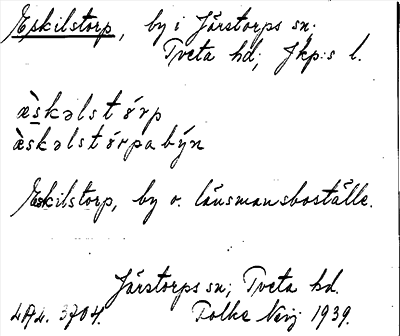 Eskilstorp, by i Järstorps sn.
Tveta hd; Jkp:s l.
ǽs̱kəlstórp
ǽskəlstórpabýn
Eskilstorp, by o. länsmansboställe.
Järstorps sn; Tveta hd.
LAL. 3704. Folke
1939.